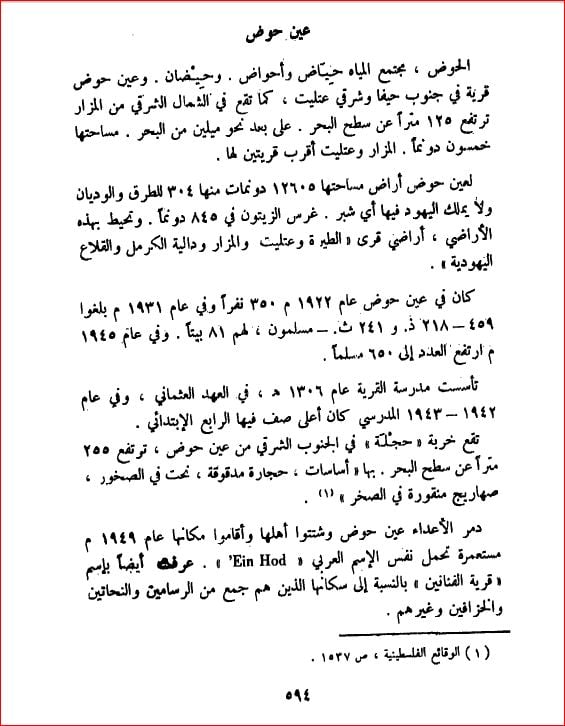 عين حوض
الحوض ، مجتمع المياه حيـَاض وأحواض . وحِيـْضان . وعين حوض
قرية في جنوب حيفا وشرقي عتليت ، كما تقع في الشمال الشرقي من المزار
ترتفع ١٢٥ متراً عن سطح البحر . على بعد نحو ميلين من البحر . مساحتها
خمسون دونماً . المزار وعتليت أقرب قريتين لها .
لعين حوض أراض مساحتها ١٢٦٠٥ دونمات منها ٣٠٤ للطرق والوديان
ولا يملك اليهود فيها أي شبر . غرس الزيتون في ٨٤٥ دونماً . وتحيط بهذه
الأراضي ، أراضي قرى « الطيرة وعتليت والمزار ودالية الكرمل والقلاع
اليهودية » .
كان في عين حوض عام ١٩٢٢ م ٣٥٠ نفراً وفي عام ١٩٣١ م بلغوا
٤٥٩ – ٢١٨ ذ. و ٢٤١ ث. – مسلمون ، لهم ٨١ بيتاً . وفي عام ١٩٤٥
م ارتفع العدد إلى ٦٥٠ مسلماً .
تأسست مدرسة القرية عام ١٣٠٦ هـ ، في العهد العثماني ، وفي عام
١٩٤٢ – ١٩٤٣ المدرسي كان أعلى صف فيها الرابع الإبتدائي .
تقع خربة « حجْلـَة » في الجنوب الشرقي من عين حوض ، ترتفع ٢٥٥
متراً عن سطح البحر . بها « أساسات ، حجارة مدقوقة ، نحت في الصخور ،
صهاريج منقورة في الصخر » (١) .
دمر الأعداء عين حوض وشتتوا أهلها وأقاموا مكانها عام ١٩٤٩ م
مستعمرة تحمل نفس الإسم العربي « Ein Hod' » . عرفت أيضاً بإسم
« قرية الفنانين » بالنسبة إلى سكانها الذين هم جمع من الرسامين والنحاتين
والخزافين وغيرهم .
(١) الوقائع الفلسطينية ، ص ١٥٣٧ .
٥٩٤